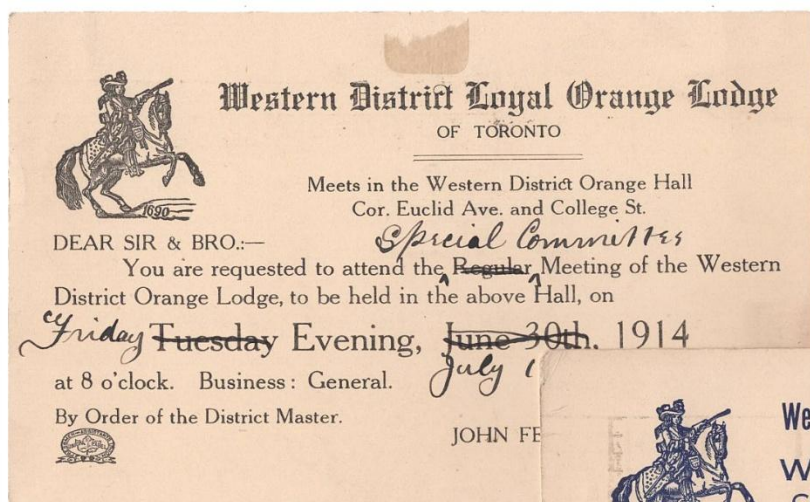 Western District Loyal Orange Lodge
OF TORONTO
1690
Meets in the Western District Orange Hall
Cor. Euclid Ave. and College St.
DEAR SIR & BRO.:—
Special Committee
You are requested to attend the Regular Meeting of the Western
District Orange Lodge, to be held in the above Hall, on
Friday Tuesday Evening, June 30th, 1914
July 1
at 8 o'clock. Business: General.
By Order of the District Master.
JOHN FE
We
W